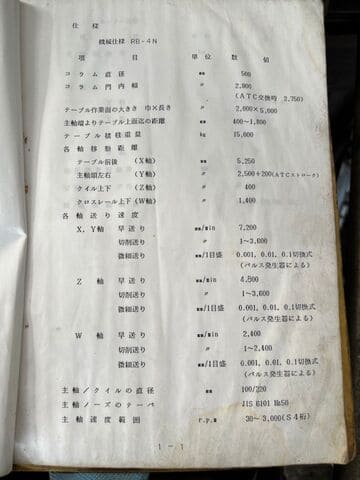 仕様
機械仕様 RB-4N
項目 単位 数値
コラム直径 mm 500
コラム門内幅 〃 2,900
(ATC交換時 2,750)
テーブル作業面の大きさ 巾×長さ 〃 2,000×5,000
主軸端よりテーブル上面迄の距離 mm 400~1,800
テーブル積載重量 kg 15,000
各軸移動距離
テーブル前後 (X軸) mm 5,250
主軸頭左右 (Y軸) 〃 2,500+200(ATCストローク)
クイル上下 (Z軸) 〃 400
クロスレール上下(W軸) 〃 1,400
各軸送り速度
X,Y軸 早送り mm/min 7,200
切削送り 〃 1~3,600
微細送り mm/1目盛 0.001, 0.01, 0.1切換式
(パルス発生器による)
Z軸 早送り mm/min 4,800
切削送り 〃 1~3,600
微細送り mm/1目盛 0.001, 0.01, 0.1切換式
(パルス発生器による)
W軸 早送り mm/min 2,400
切削送り 〃 1~2,400
微細送り mm/1目盛 0.001, 0.01, 0.1切換式
(パルス発生器による)
主軸/クイルの直径 mm 100/220
主軸ノーズのテーパ JIS 6101 №50
主軸速度範囲 r.p.m 30~3,000(S4桁)
1-1